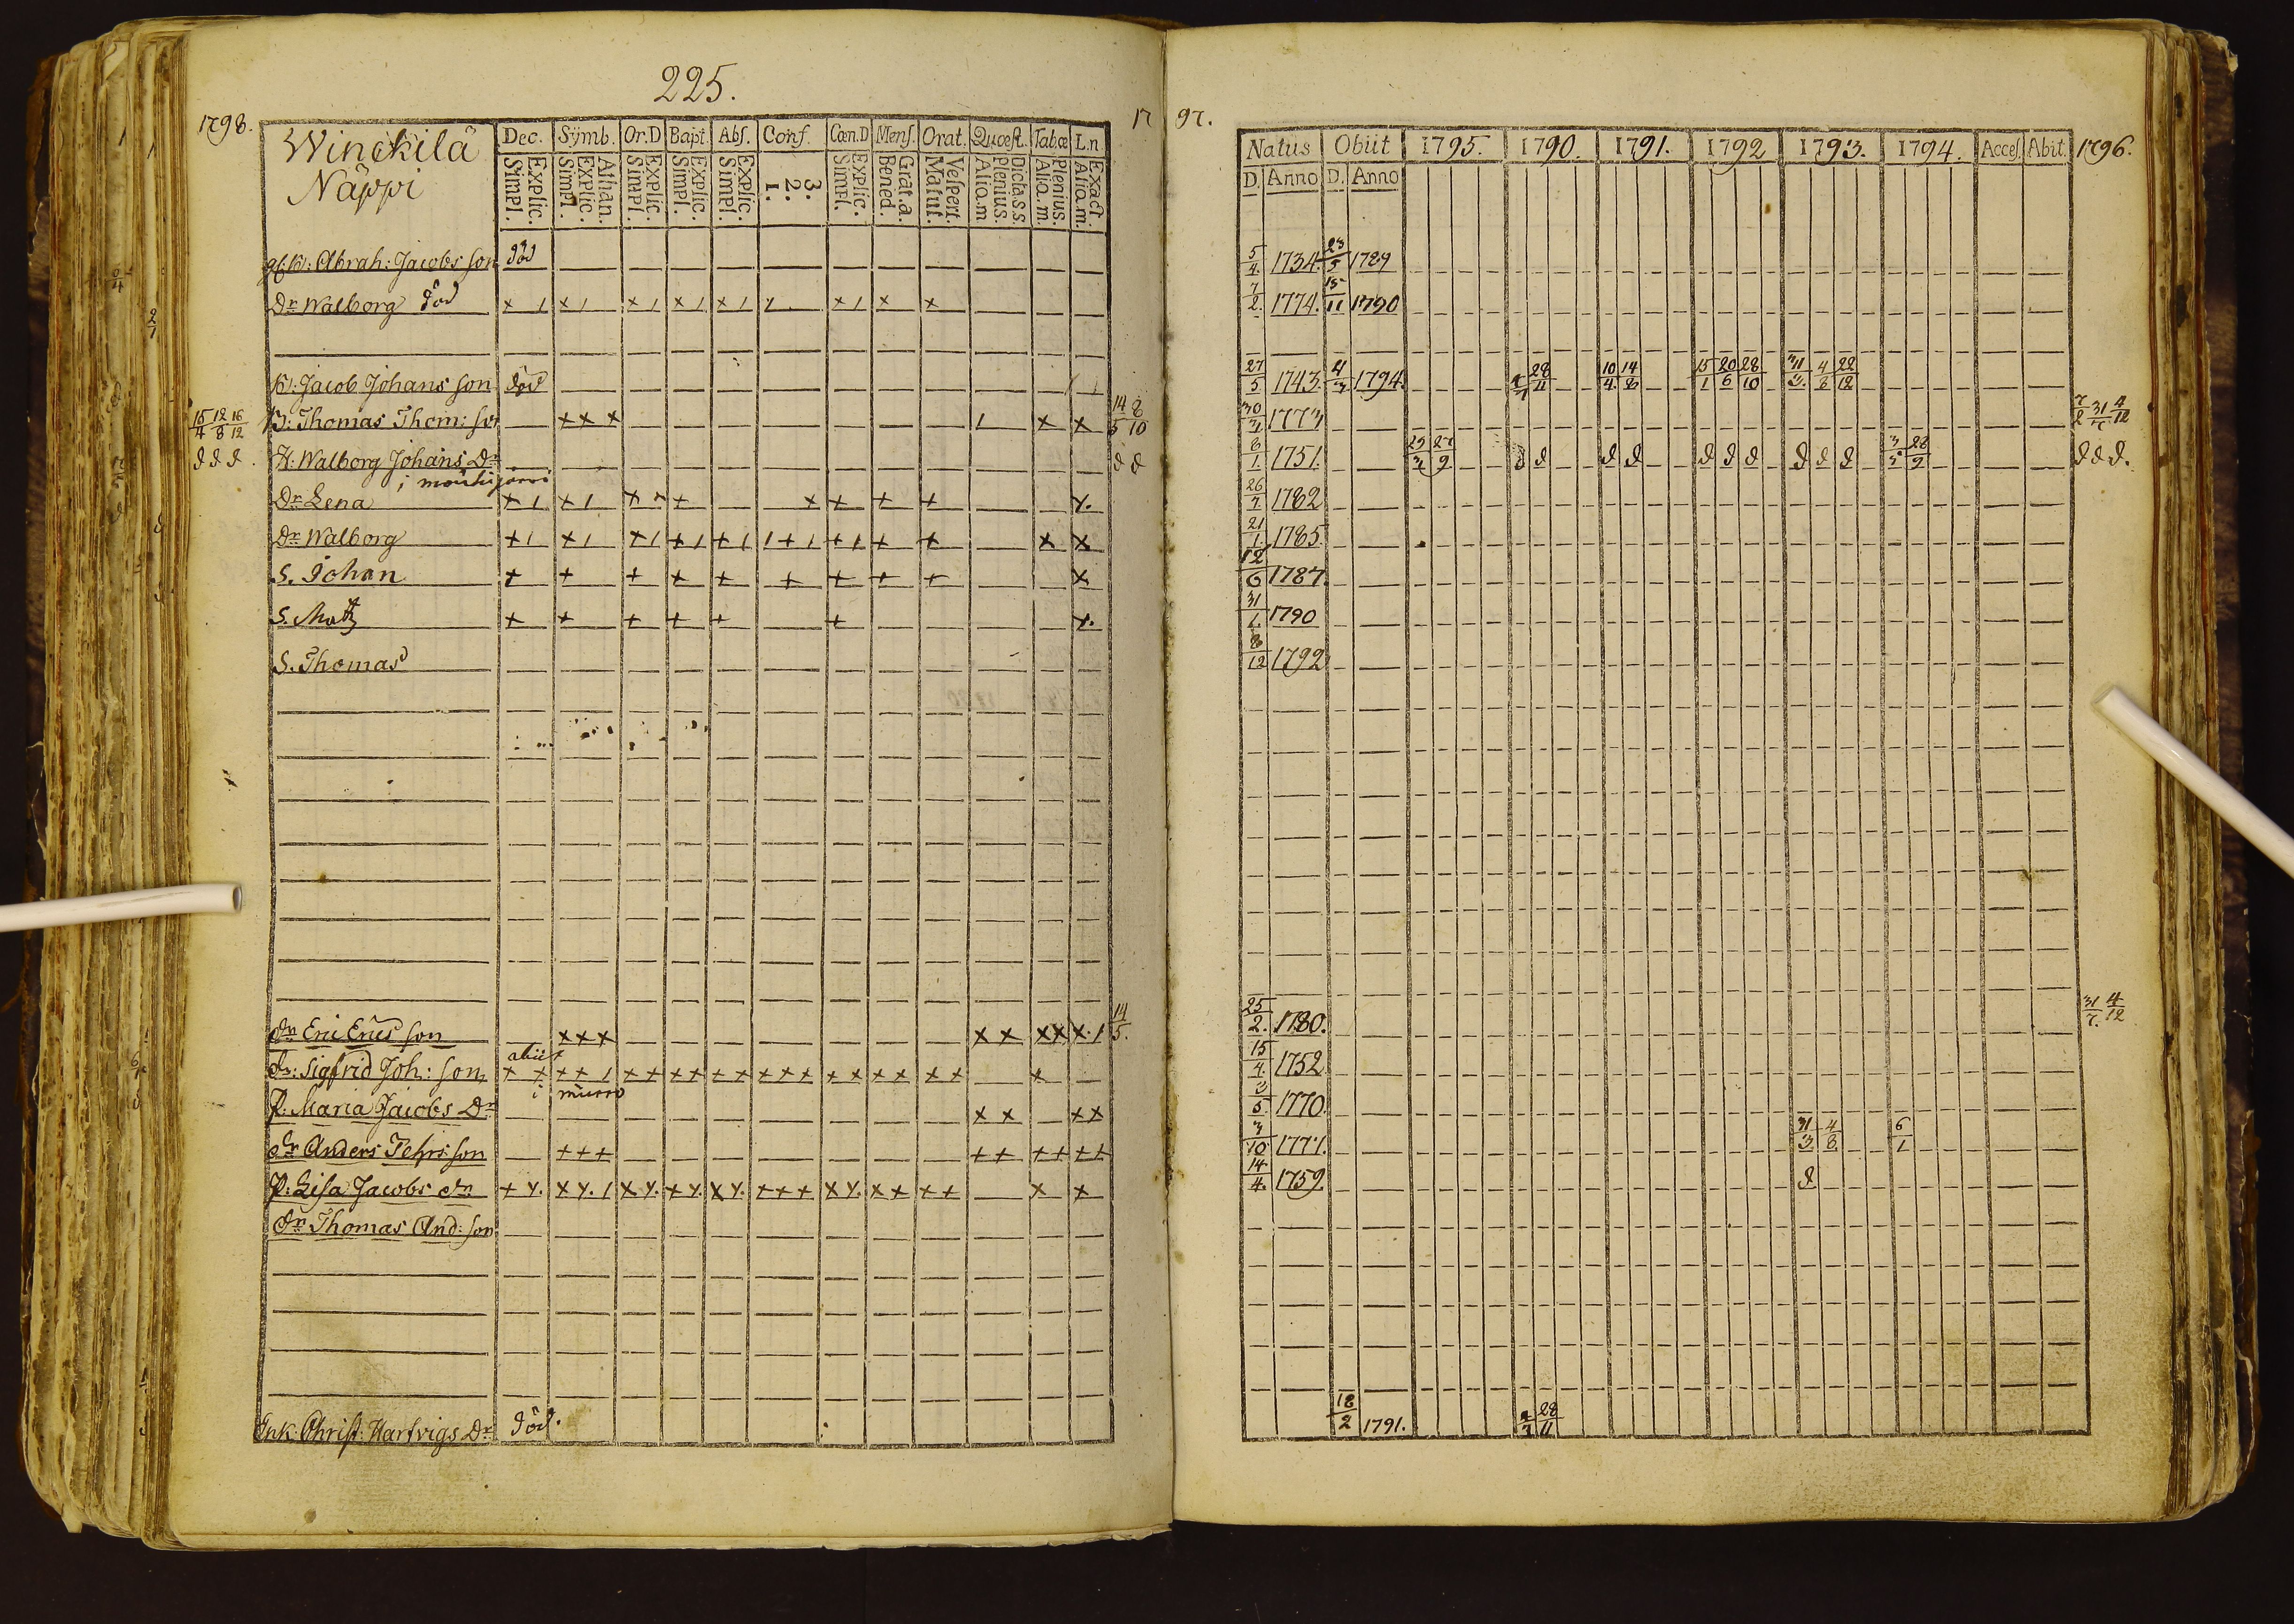 225.
1798.
17 97.
1796.
Winckilä
Näppi
Dec. Symb. Or.D Bapt. Abs. Conf. Cœn.D Mens. Orat. Quœst. Tabœ L.n
Explic. Simpl. Athan. Explic. Simpl. Explic. Simpl. Explic. Simpl. Explic. Simpl. 3. 2. 1. Explic. Simpl. Grat.a. Bened. Vespert. Matut. Dicta.s.s. Plenius. Alio.m Plenius. Alio.m. Exact Alio.m.
Natus Obiit 1795. 1790. 1791. 1792 1793. 1794. Acces. Abit.
D. Anno D. Anno
Abrah: Jacobs son död 5/4 1734. 23/5 1789
Dr Walborg död x 1 x 1 x 1 x 1 x 1 x 1 x x 7/2. 1774. 15/11 1790
Jacob Johans son död 27/5 1743. 4/3 1794. 28/11 10/4 14/8 15/1 20/6 28/10 31/3 4/8 22/12
15/4 12/8 16/12 B: Thomas Thom: son x x x 1 x x 14/5 8/10 1773 31/7 4/12
d d d. H: Walborg Johans Dr d d 6/1. 1751. 27/9 d d d d d d d d d d 28/9 d d d.
i
Dr Lena x 1 x 1 x x x x x x x x. 26/7 1782
Dr Walborg x 1 x 1 x 1 x 1 x 1 1 x 1 x 1 x x x x 21/1 1785.
S. Johan x x x x x x x x x x 12/6 1787.
S. Matz x x x x x x x. 31/1. 1790
S. Thomas 8/12 1792
dr Eric Erics son x x x x x x x x 1 14/5. 25/2. 1780. 31/7. 4/12
abiit
dr: Sigfrid Joh: son x x x x 1 x x x x x x x x x x x x x x x x 15/4. 1752
i murro
P. Maria Jacobs Dr x x x x 3/5. 1770.
dr Anders Tehrs son x x x x x x x x x 3/10 1771. 31/3 4/8 6/1
P: Lisa Jacobs dr x x. x x. 1 x x. x x. x x. x x x x x. x x x x x x 14/4. 1759. d
dr Thomas And: son
Enk: Christ: Hartvigs Dr död. 18/2 1791. 28/11